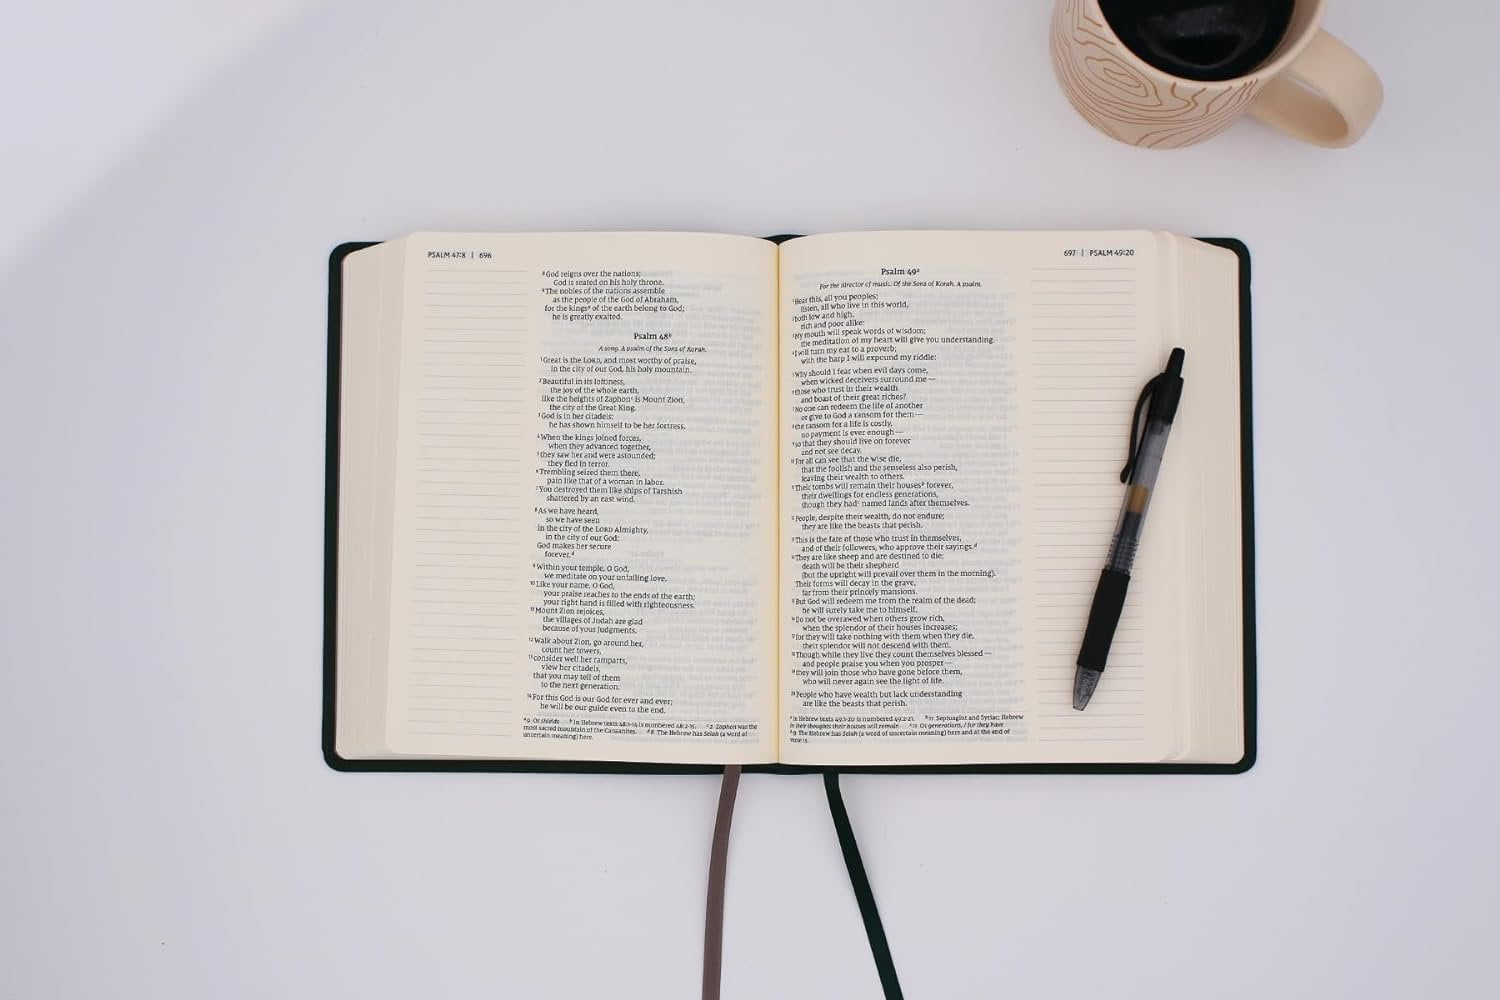 PSALM 47:8 | 696
⁸God reigns over the nations;
God is seated on his holy throne.
⁹The nobles of the nations assemble
as the people of the God of Abraham,
for the kingsᵃ of the earth belong to God;
he is greatly exalted.
Psalm 48ᵇ
A song. A psalm of the Sons of Korah.
¹Great is the LORD, and most worthy of praise,
in the city of our God, his holy mountain.
²Beautiful in its loftiness,
the joy of the whole earth,
like the heights of Zaphonᶜ is Mount Zion,
the city of the Great King.
³God is in her citadels;
he has shown himself to be her fortress.
⁴When the kings joined forces,
when they advanced together,
⁵they saw her and were astounded;
they fled in terror.
⁶Trembling seized them there,
pain like that of a woman in labor.
⁷You destroyed them like ships of Tarshish
shattered by an east wind.
⁸As we have heard,
so we have seen
in the city of the LORD Almighty,
in the city of our God:
God makes her secure
forever.ᵈ
⁹Within your temple, O God,
we meditate on your unfailing love.
¹⁰Like your name, O God,
your praise reaches to the ends of the earth;
your right hand is filled with righteousness.
¹¹Mount Zion rejoices,
the villages of Judah are glad
because of your judgments.
¹²Walk about Zion, go around her,
count her towers,
¹³consider well her ramparts,
view her citadels,
that you may tell of them
to the next generation.
¹⁴For this God is our God for ever and ever;
he will be our guide even to the end.
ᵃ9 Or shields ᵇ In Hebrew texts 48:1-14 is numbered 48:2-15. ᶜ2 Zaphon was the
most sacred mountain of the Canaanites. ᵈ8 The Hebrew has Selah (a word of
uncertain meaning) here.
697 | PSALM 49:20
Psalm 49ᵃ
For the director of music. Of the Sons of Korah. A psalm.
¹Hear this, all you peoples;
listen, all who live in this world,
²both low and high,
rich and poor alike:
³My mouth will speak words of wisdom;
the meditation of my heart will give you understanding.
⁴I will turn my ear to a proverb;
with the harp I will expound my riddle:
⁵Why should I fear when evil days come,
when wicked deceivers surround me—
⁶those who trust in their wealth
and boast of their great riches?
⁷No one can redeem the life of another
or give to God a ransom for them—
⁸the ransom for a life is costly,
no payment is ever enough—
⁹so that they should live on forever
and not see decay.
¹⁰For all can see that the wise die,
that the foolish and the senseless also perish,
leaving their wealth to others.
¹¹Their tombs will remain their housesᵇ forever,
their dwellings for endless generations,
though they hadᶜ named lands after themselves.
¹²People, despite their wealth, do not endure;
they are like the beasts that perish.
¹³This is the fate of those who trust in themselves,
and of their followers, who approve their sayings.ᵈ
¹⁴They are like sheep and are destined to die;
death will be their shepherd
(but the upright will prevail over them in the morning).
Their forms will decay in the grave,
far from their princely mansions.
¹⁵But God will redeem me from the realm of the dead;
he will surely take me to himself.
¹⁶Do not be overawed when others grow rich,
when the splendor of their houses increases;
¹⁷for they will take nothing with them when they die,
their splendor will not descend with them.
¹⁸Though while they live they count themselves blessed—
and people praise you when you prosper—
¹⁹they will join those who have gone before them,
who will never again see the light of life.
²⁰People who have wealth but lack understanding
are like the beasts that perish.
ᵃIn Hebrew texts 49:1-20 is numbered 49:2-21. ᵇ11 Septuagint and Syriac; Hebrew
In their thoughts their houses will remain ᶜ11 Or generations, / for they have
ᵈ13 The Hebrew has Selah (a word of uncertain meaning) here and at the end of
verse 15.